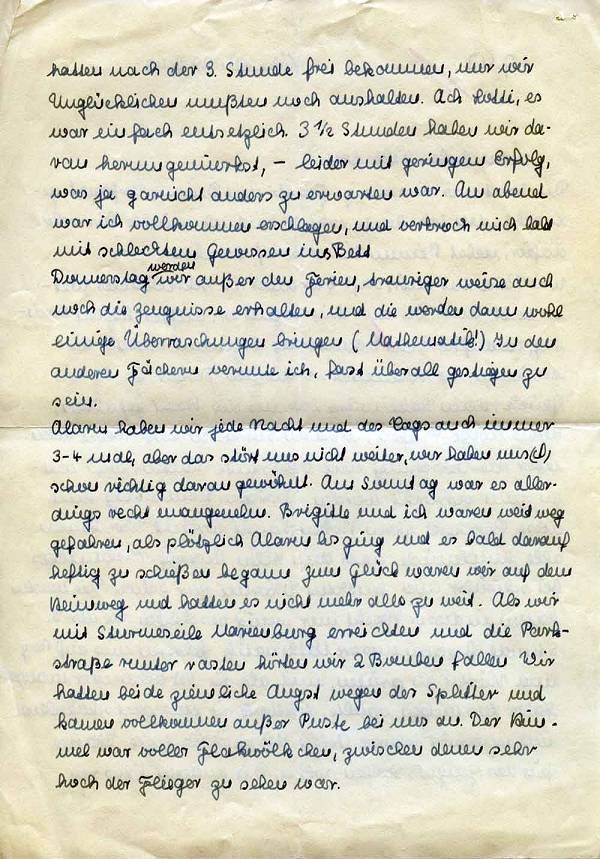 hatten nach der 3. Stunde frei bekommen, nur wir
Unglücklichen mußten noch aushalten. Ach Lotti, es
war einfach entsetzlich. 3 1/2 Stunden haben wir da-
ran herumgemurkst, – leider mit geringem Erfolg,
was ja garnicht anders zu erwarten war. Am abend
war ich vollkommen erschlagen, und verkroch mich bald
mit schlechtem Gewissen ins Bett
werden
Donnerstag wir außer den Ferien, trauriger weise auch
noch die Zeugnisse erhalten, und die werden dann wohl
einige Überraschungen bringen (Mathematik!) In den
anderen Fächern vermute ich, fast überall gestiegen zu
sein.
Alarm haben wir jede Nacht und des Tags auch immer
3-4 mal, aber das stört uns nicht weiter, wir haben uns
schon richtig daran gewöhnt. Am Sonntag war es aller-
dings recht unangenehm. Brigitte und ich waren weit weg
gefahren, als plötzlich Alarm los ging und es bald darauf
heftig zu schießen begann zum Glück waren wir auf dem
Heimweg und hatten es nicht mehr allo zu weit. Als wir
mit Sturmeseile Marienburg erreichten und die Park-
straße runter rasten hörten wir 2 Bomben fallen Wir
hatten beide ziemliche Angst wegen der Splitter und
kamen vollkommen außer Puste bei uns an. Der Him-
mel war voller Flakwölkchen, zwischen denen sehr
hoch der Flieger zu sehen war.